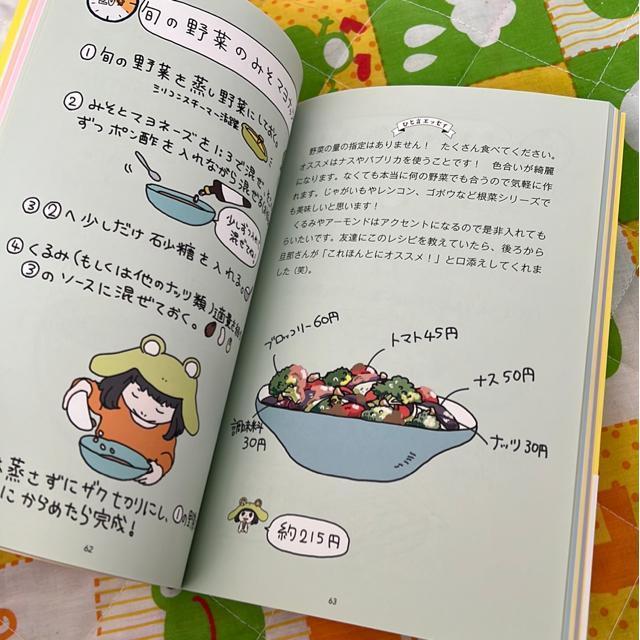 旬の野菜のみそマヨ
①旬の野菜を蒸し野菜にしておく。
シリコンスチーマー活躍
②みそとマヨネーズを1:3で混ぜ、
ずつポン酢を入れながら混ぜる
少しずつ
混ぜてね!
③②へ少しだけ石少糖を入れる。
④くるみ(もしくは他のナッツ類)適量を
③のソースに混ぜておく。
蒸さずにザクセカリにし、①の野
にからめたら完成!
62
ひと言エッセイ
野菜の量の指定はありません! たくさん食べてください。
オススメはナスやパプリカを使うことです! 色合いが綺麗
になります。なくても本当に何の野菜でも合うので気軽に作
れます。じゃがいもやレンコン、ゴボウなど根菜シリーズで
も美味しいと思います!
くるみやアーモンドはアクセントになるので是非入れても
らいたいです。友達にこのレシピを教えていたら、後ろから
旦那さんが「これほんとにオススメ!」と口添えしてくれま
した(笑)。
ブロッコリー60円
トマト45円
ナス50円
調味料
30円
ナッツ30円
約215円
63